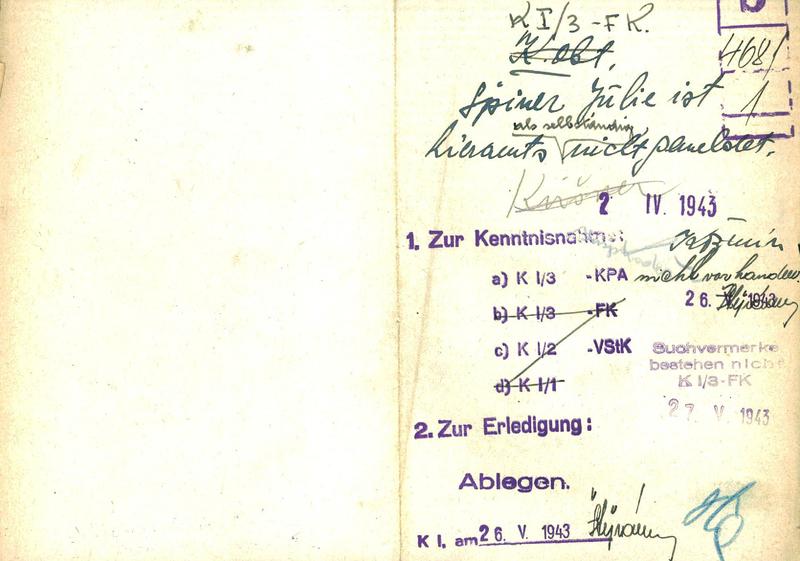 K I/3 - FK.
K. obt.
468/
1
Spiner Julie ist
als selbständig
hieramts nicht gemeldet.
2 IV. 1943
1. Zur Kenntnisnahme:
a) K I/3 -KPA
nicht vorhanden.
b) K I/3 -FK
26. V. 1943
c) K I/2 -VStK
Suchvermerke
bestehen nicht
K I/3-FK
d) K I/1
27. V. 1943
2. Zur Erledigung:
Ablegen.
K I, am 26. V. 1943